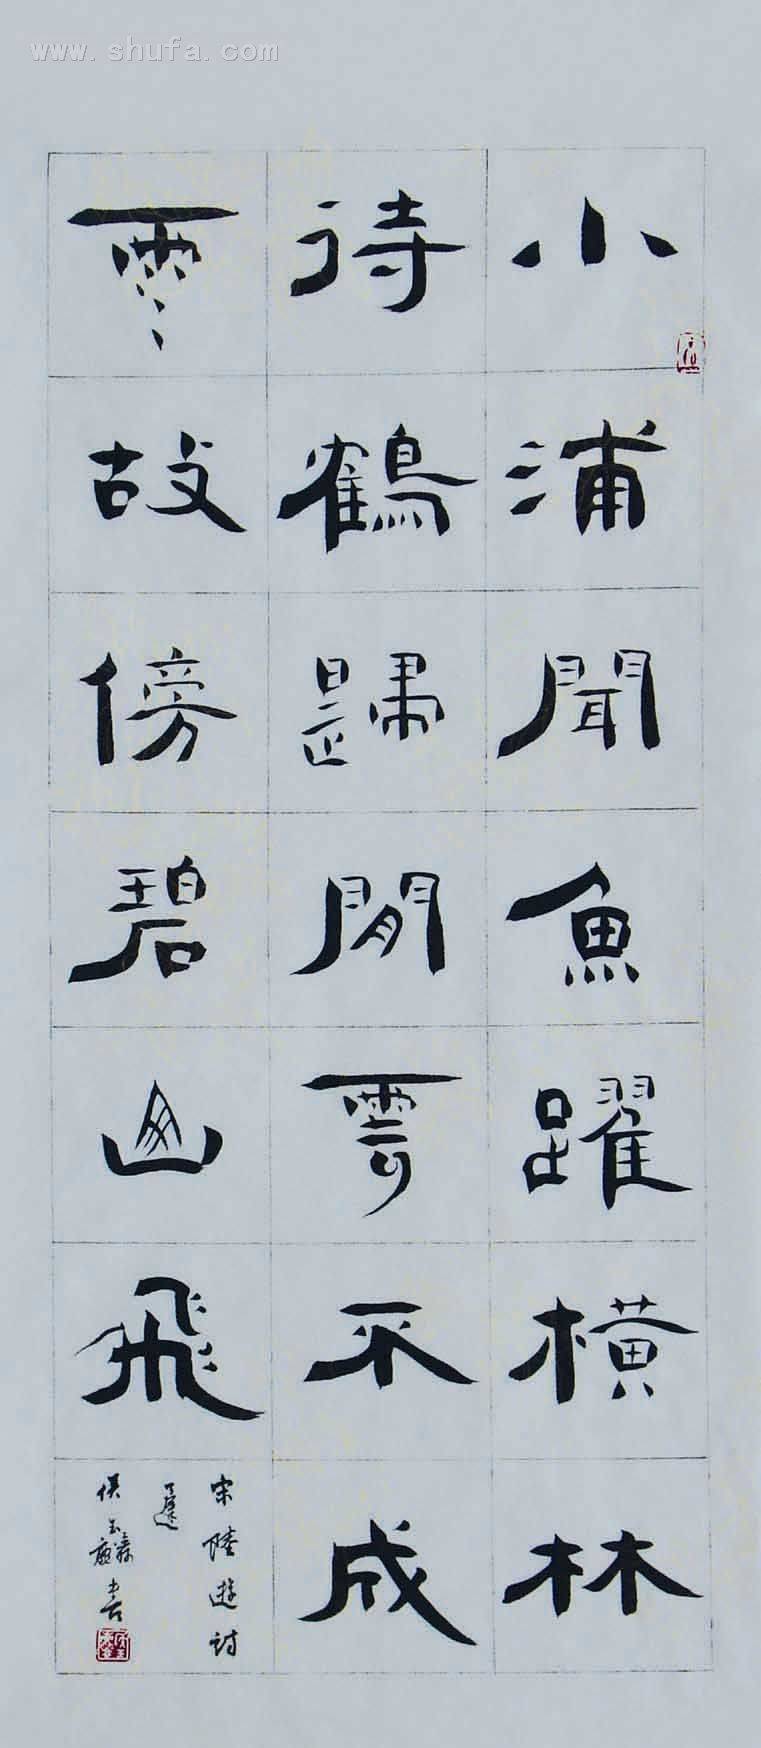 www.shufa.com
小浦聞魚躍橫林
待鶴歸閒雲不成
雨故傍碧山飛
宋陸游詩
侯玉麟書